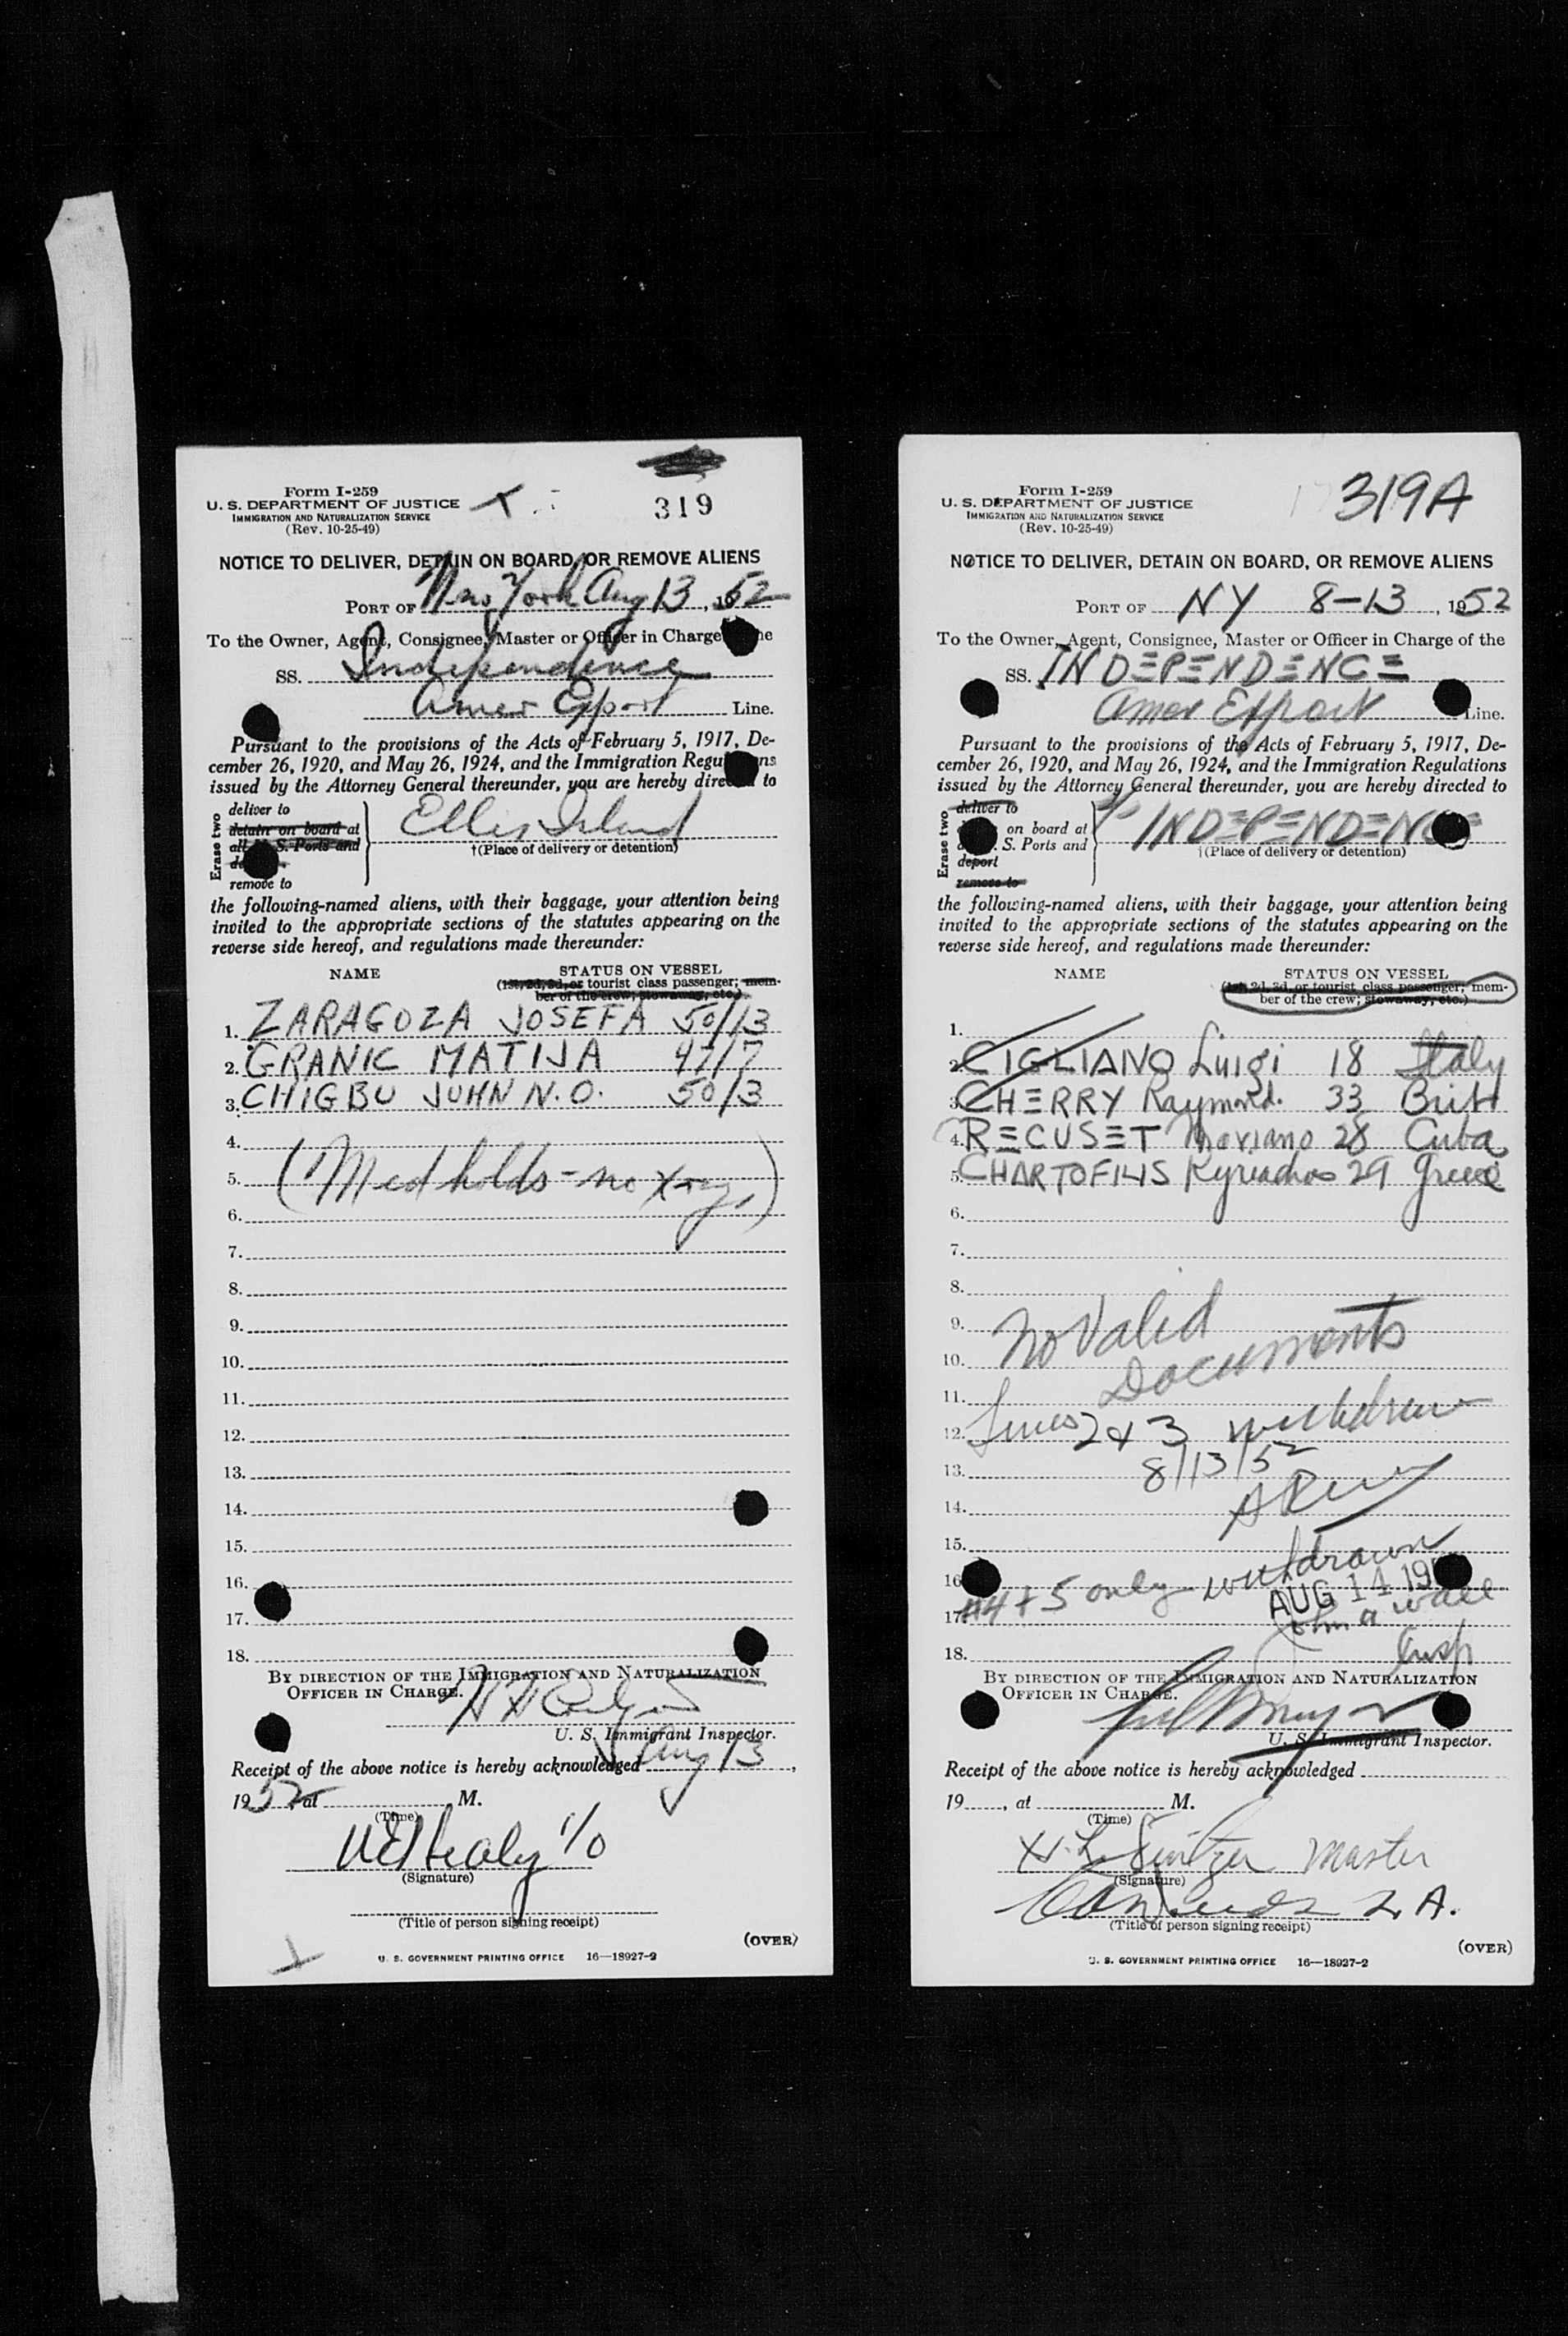 Form I-259
U. S. DEPARTMENT OF JUSTICE
IMMIGRATION AND NATURALIZATION SERVICE
(Rev. 10-25-49)
319
NOTICE TO DELIVER, DETAIN ON BOARD, OR REMOVE ALIENS
PORT OF New York Aug 13, 1952
To the Owner, Agent, Consignee, Master or Officer in Charge
SS. Independence
Amer Export Line.
Pursuant to the provisions of the Acts of February 5, 1917, De-
cember 26, 1920, and May 26, 1924, and the Immigration Regu ns
issued by the Attorney General thereunder, you are hereby directed to
Erase two
deliver to
detain on board at
all U. S. Ports and
remove to
Ellis Island
†(Place of delivery or detention)
the following-named aliens, with their baggage, your attention being
invited to the appropriate sections of the statutes appearing on the
reverse side hereof, and regulations made thereunder:
NAME STATUS ON VESSEL
(1st, 2d, 3d, or tourist class passenger; mem-
ber of the crew; stowaway, etc.)
1. ZARAGOZA JOSEFA 50/13
2. GRANIC MATIJA 47/7
3. CHIGBU JOHN N. O. 50/3
4.
5. (Med holds - no xrays)
6.
7.
8.
9.
10.
11.
12.
13.
14.
15.
16.
17.
18.
BY DIRECTION OF THE IMMIGRATION AND NATURALIZATION
OFFICER IN CHARGE.
U. S. Immigrant Inspector.
Receipt of the above notice is hereby acknowledged Aug 13,
1952, at M.
(Time)
Healy
(Signature)
(Title of person signing receipt)
(OVER)
U. S. GOVERNMENT PRINTING OFFICE 16—18927-2
Form I-259
U. S. DEPARTMENT OF JUSTICE
IMMIGRATION AND NATURALIZATION SERVICE
(Rev. 10-25-49)
319A
NOTICE TO DELIVER, DETAIN ON BOARD, OR REMOVE ALIENS
PORT OF NY 8-13, 1952
To the Owner, Agent, Consignee, Master or Officer in Charge of the
SS. INDEPENDENCE
Amer Export Line.
Pursuant to the provisions of the Acts of February 5, 1917, De-
cember 26, 1920, and May 26, 1924, and the Immigration Regulations
issued by the Attorney General thereunder, you are hereby directed to
Erase two
deliver to
on board at
S. Ports and
deport
remove to
INDEPENDENCE
†(Place of delivery or detention)
the following-named aliens, with their baggage, your attention being
invited to the appropriate sections of the statutes appearing on the
reverse side hereof, and regulations made thereunder:
NAME STATUS ON VESSEL
(1st, 2d, 3d, or tourist class passenger; mem-
ber of the crew; stowaway, etc.)
1.
2. CIGLIANO Luigi 18 Italy
3. CHERRY Raymond. 33 Brit
4. RECUSET Mariano 28 Cuba
5. CHARTOFILIS Kyriachos 29 Greece
6.
7.
8.
9. No Valid
10. Documents
11.
12. Lines 2 & 3 withdrawn
13. 8/13/52
14.
15.
16. #4 + 5 only withdrawn
17. AUG 14 19
John A Wall
18. Insp
BY DIRECTION OF THE IMMIGRATION AND NATURALIZATION
OFFICER IN CHARGE.
U. S. Immigrant Inspector.
Receipt of the above notice is hereby acknowledged
19 , at M.
(Time)
Master
(Signature)
(Title of person signing receipt)
(OVER)
U. S. GOVERNMENT PRINTING OFFICE 16—18927-2